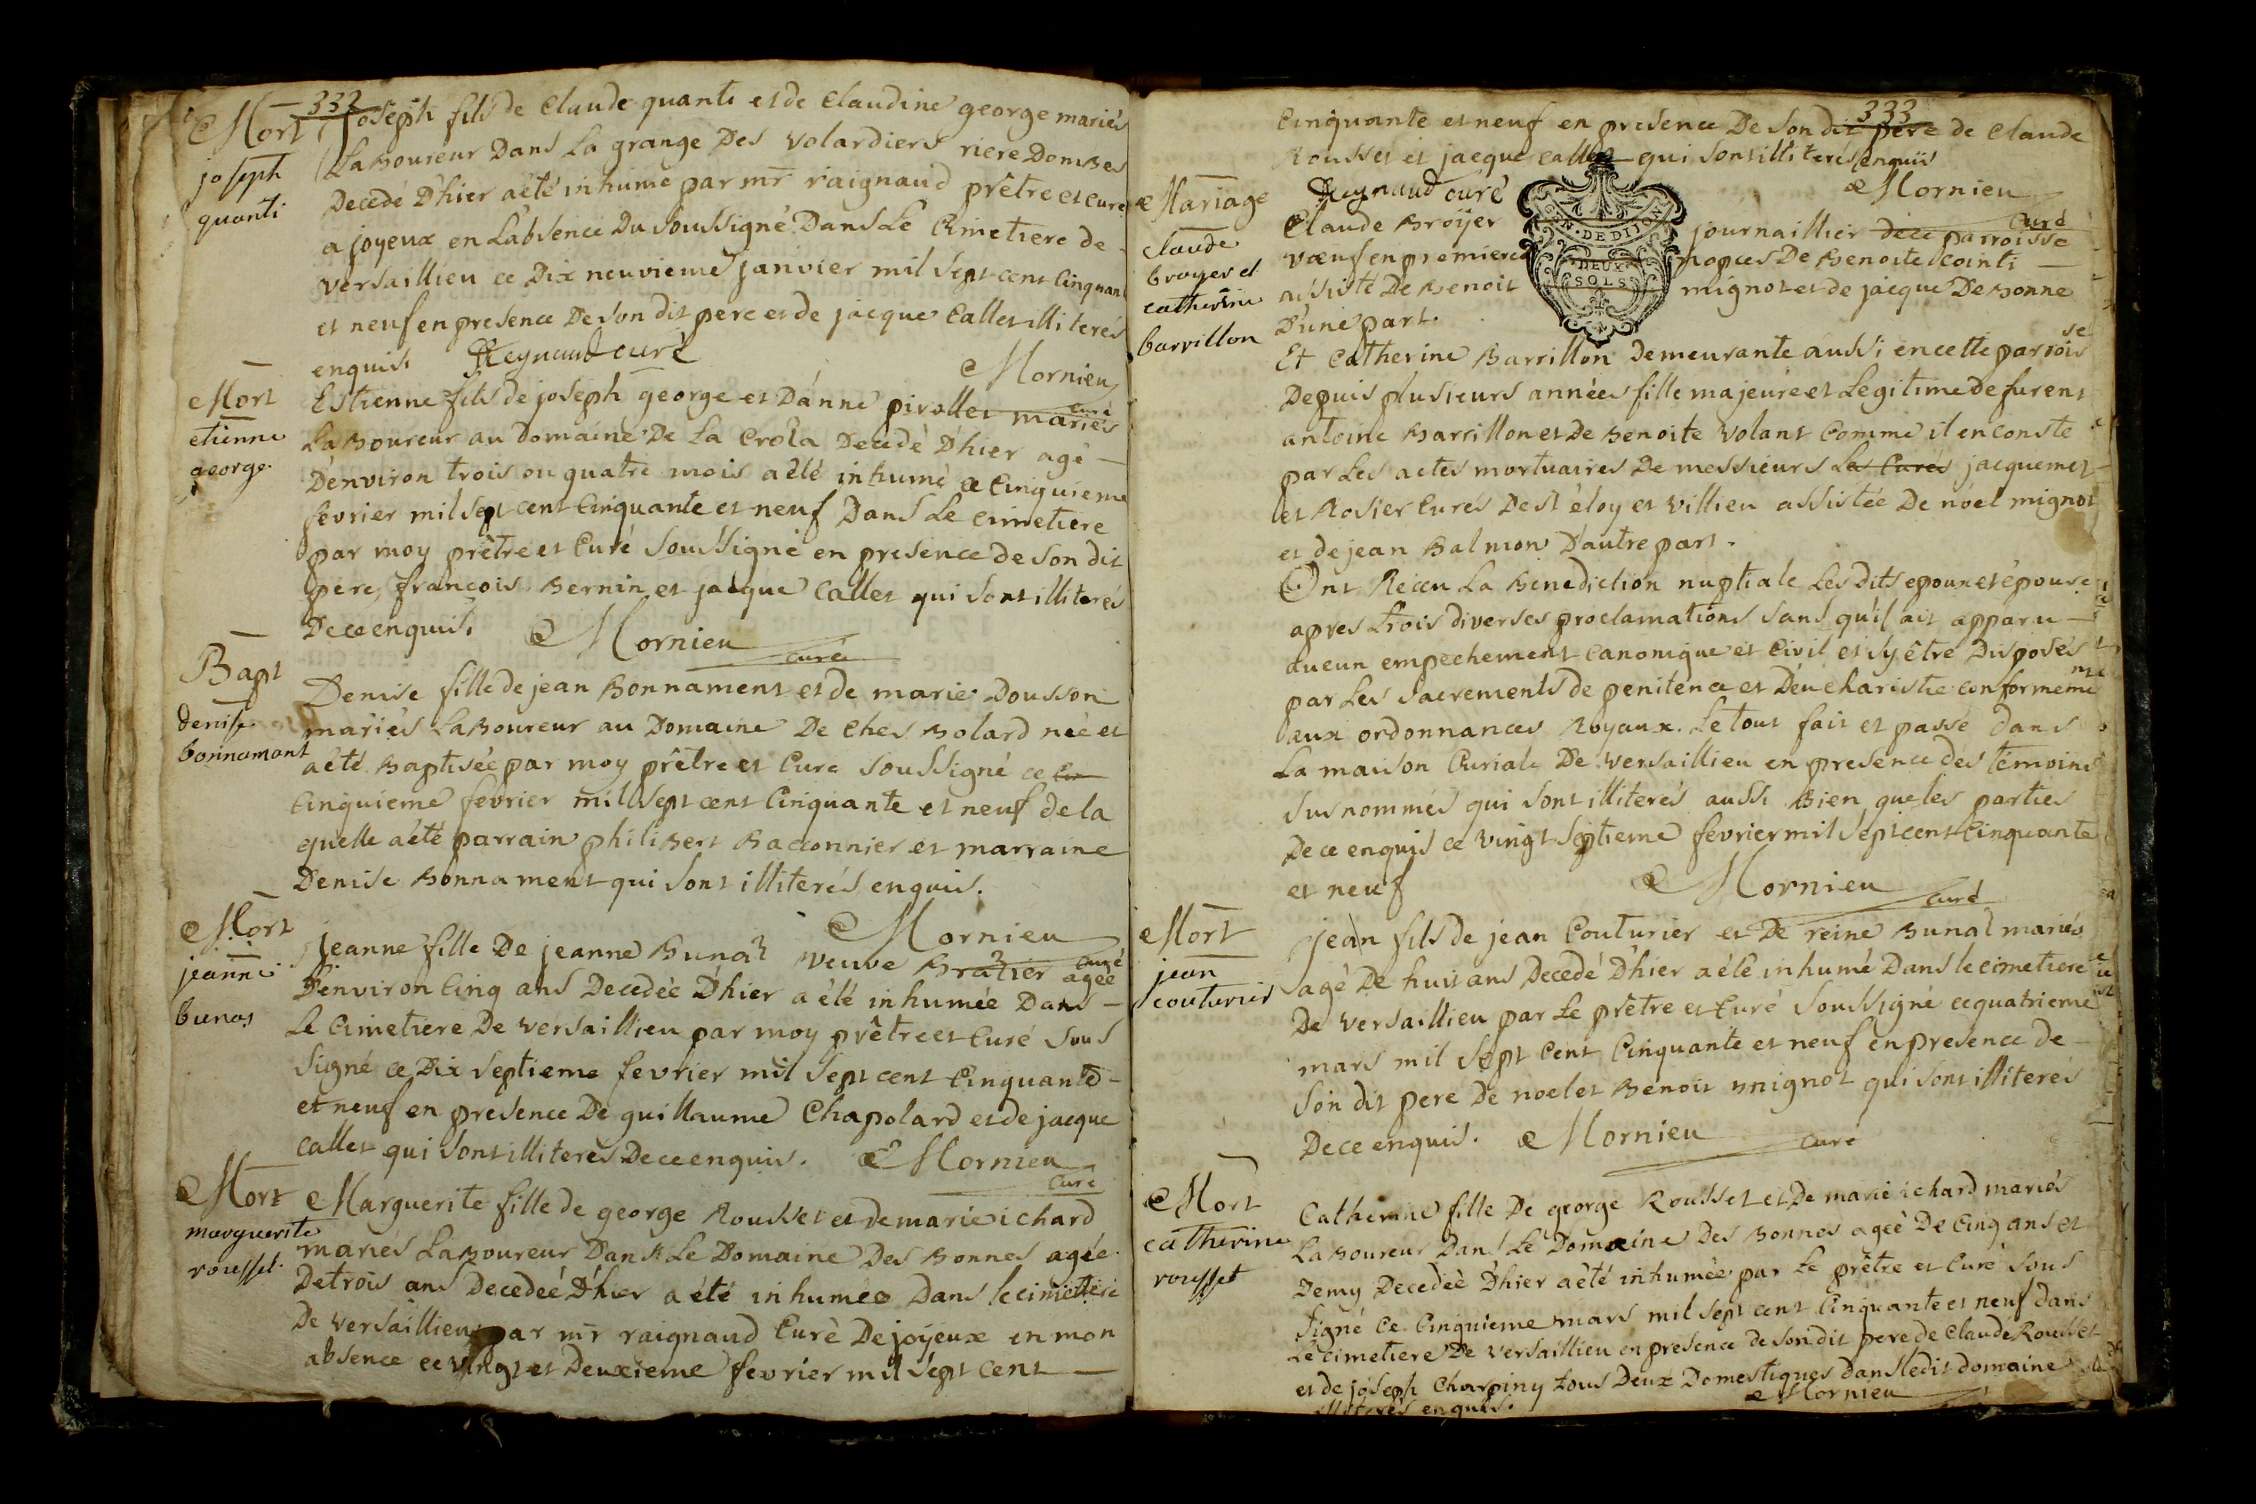 332
Mort
joseph
quanti
Joseph fils de Claude quanti et de Claudine george mariés
LaBoureur Dans La grange Des Volardiers riere DomBes
Decedé D'hier a été inhumé par mr raignaud prêtre et curé
a joyeux en L'absence Du soussigné Dans Le Cimetiere de
Versaillieu ce Dix neuvieme janvier mil sept cent Cinquante
et neuf en presence De son dit pere et de jacque Callet illiterés
enquis. Reynaud curé
Mornieu
curé
Mort
etienne
george.
Estienne fils de joseph george et D'anne pirollet mariés
LaBoureur au Domaine De La Crota Decedé D'hier agé
D'environ trois ou quatre mois a été inhumé ce Cinquieme
fevrier mil sept cent Cinquante et neuf Dans Le cimetiere
par moy prêtre et Curé soussigné en presence de son dit
pere, francois Bernin et jacque Callet qui sont illiterés
De ce enquis. Mornieu
curé
Bapt
denise
bonnamant
Denise fille de jean Bonnament et de marie Dousson
mariés LaBoureur au Domaine De Ches Bolard née et
a été Baptisée par moy prêtre et Cure soussigné ce Cin
Cinquieme fevrier mil sept cent Cinquante et neuf de la
quelle a été parrain philiBert Baconnier et marraine
Denise Bonnament qui sont illiterés enquis.
Mornieu
curé
Mort
jeanne
bunas
Jeanne fille De jeanne Bunat veuve Bratier agée
D'environ Cinq ans Decedée D'hier a été inhumée Dans
Le Cimetiere De Versaillieu par moy prêtre et Curé sous
signé ce Dix septieme fevrier mil sept cent Cinquante
et neuf en presence De guillaume Chapolard et de jacque
callet qui sont illiterés De ce enquis. Mornieu
curé
Mort
marguerite
rousset.
Marguerite fille de george Rousset et de marie ichard
mariés LaBoureur Dans Le Domaine Des Bonnes agée
De trois ans Decedeé D'hier a été inhumée Dans le cimetiere
De Versaillieu par mr raignaud Curé De joyeux en mon
absence ce vingt et Deuxieme fevrier mil sept cent
333
Cinquante et neuf en presence De son dit pere de Claude
Rousset et jacque callet qui sont illiterés enquis
Reynaud curé
Mornieu
curé
GEN. DE DIJON
DEUX
SOLS
Mariage
claude
broyer et
catherine
barrillon
Claude Broÿer journaillier de ce parroisse
vœuf en premiere nopces De Benoite Cointi
assisté De Benoit mignot et de jacque De Bonne
D'une part.
Et Catherine Barrillon Demeurante aussi en cette parroisse
Depuis plusieurs années fille majeure et Legitime de furent
antoine Barrillon et De Benoite Volant Comme il en conste
par Les actes mortuaires De messieurs Les Curés jacquemet
et Rosier Curés De st éloy et Villieu assistée De nöel mignot
et de jean Balmon D'autre part.
Ont Receu La Benediction nuptiale Les dits epoux et épouse
apres trois diverses proclamations sans qu'il ait apparu
aucun empechement canonique et Civil et s'y être Disposés
par Les sacrements de penitence et D'eucharistie conformement
aux ordonnances Royaux. Le tout fait et passé dans
La maison Curiale De Versaillieu en presence des temoins
susnommés qui sont illiterés aussi Bien que les parties
De ce enquis ce vingt septieme fevrier mil sept cent Cinquante
et neuf Mornieu
curé
Mort
jean
couturier
jean fils de jean Couturier et De reine Bunat mariés
agé De huit ans Decedé D'hier a été inhumé Dans le cimetiere
De Versaillieu par Le prêtre et Curé soussigné ce quatrieme
mars mil sept cent Cinquante et neuf en presence de
son dit pere De noel et Benoit mignot qui sont illiterés
De ce enquis. Mornieu curé
Mort
catherine
rousset
Catherine fille De george Rousset et De marie ichard mariés
LaBoureur Dans Le Domaine Des Bonnes ageé De Cinq ans et
Demy Decedeé D'hier a été inhumée par Le prêtre et Curé sous
signé Ce Cinquieme mars mil sept cent Cinquante et neuf dans
Le cimetiere De Versaillieu en presence de son dit pere de Claude Rousset
et de joseph Charpiny tous Deux Domestiques Dans ledit domaine
illiterés enquis. Mornieu